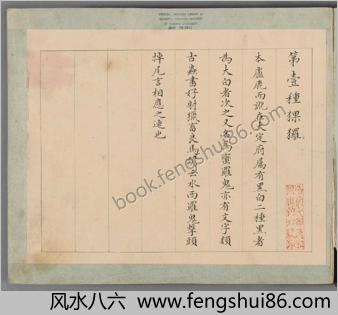 第壹種猓玀
本盧鹿而訛在大定府屬有黑白二種黑者
為大白者次之又名烏蠻羅鬼亦有文字類
古蟲書好射獵畜良馬諺云水西羅鬼擊頭
掉尾言相應之速也
book.fengshui86.com
风水八六 www.fengshui86.com